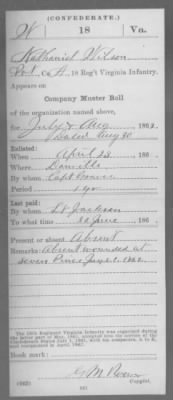 (CONFEDERATE.)
W 18 Va.
Nathaniel Wilson
Co. A, 18 Reg't Virginia Infantry.
Appears on
Company Muster Roll
of the organization named above,
for July & Aug, 186
Dated Aug 30
Enlisted:
When April 23, 186
Where Danville
By whom Capt
Period 1 yr
Last paid:
By whom Lt Jackson
To what time 30 June, 186
Present or absent Absent
Remarks: Absent wounded at
Seven Pines June 1, 1862.
The 18th Regiment Virginia Infantry was organized during
the latter part of May, 1861, accepted into the service of the
Confederate States July 1, 1861, with ten companies, A to K,
and reorganized in April, 1862.
Book mark:
G M
(642) Copyist.